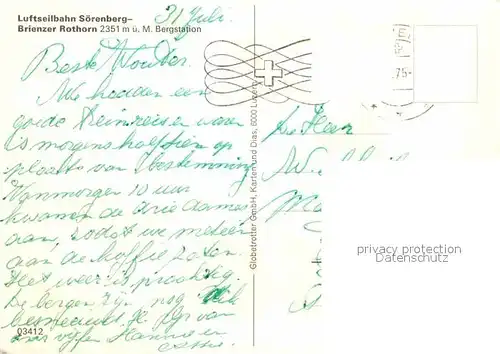 Luftseilbahn Sörenberg–
Brienzer Rothorn 2351 m ü. M. Bergstation
31 Juli.
Beste Wouter.
We hadden een
goede treinreis en waren
's morgens half tien op
plaats van bestemming
Vanmorgen 10 uur
kwamen de drie dames
aan, zodat we meteen
aan de koffie zaten.
Het weer is prachtig.
De bergen zijn nog
besneeuwd. H. Gr. van
ons vijven Hannie en
03412
Globetrotter GmbH, Karten und Dias, 6000 Luzern
75-
De Heer
W.
privacy protection
www.oldthing.de